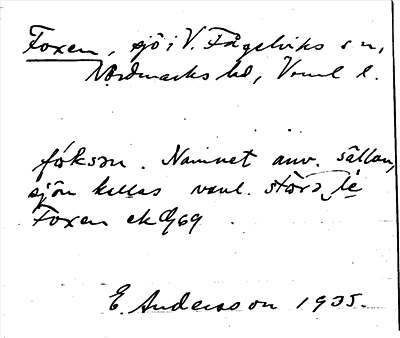 Foxen, sjö i V. Fågelviks sn,
Nordmarks hd, Vrml l.
fóksən. Namnet anv. sällan,
sjön kallas vanl. stora le
Foxen ek 969
E. Andersson 1935.